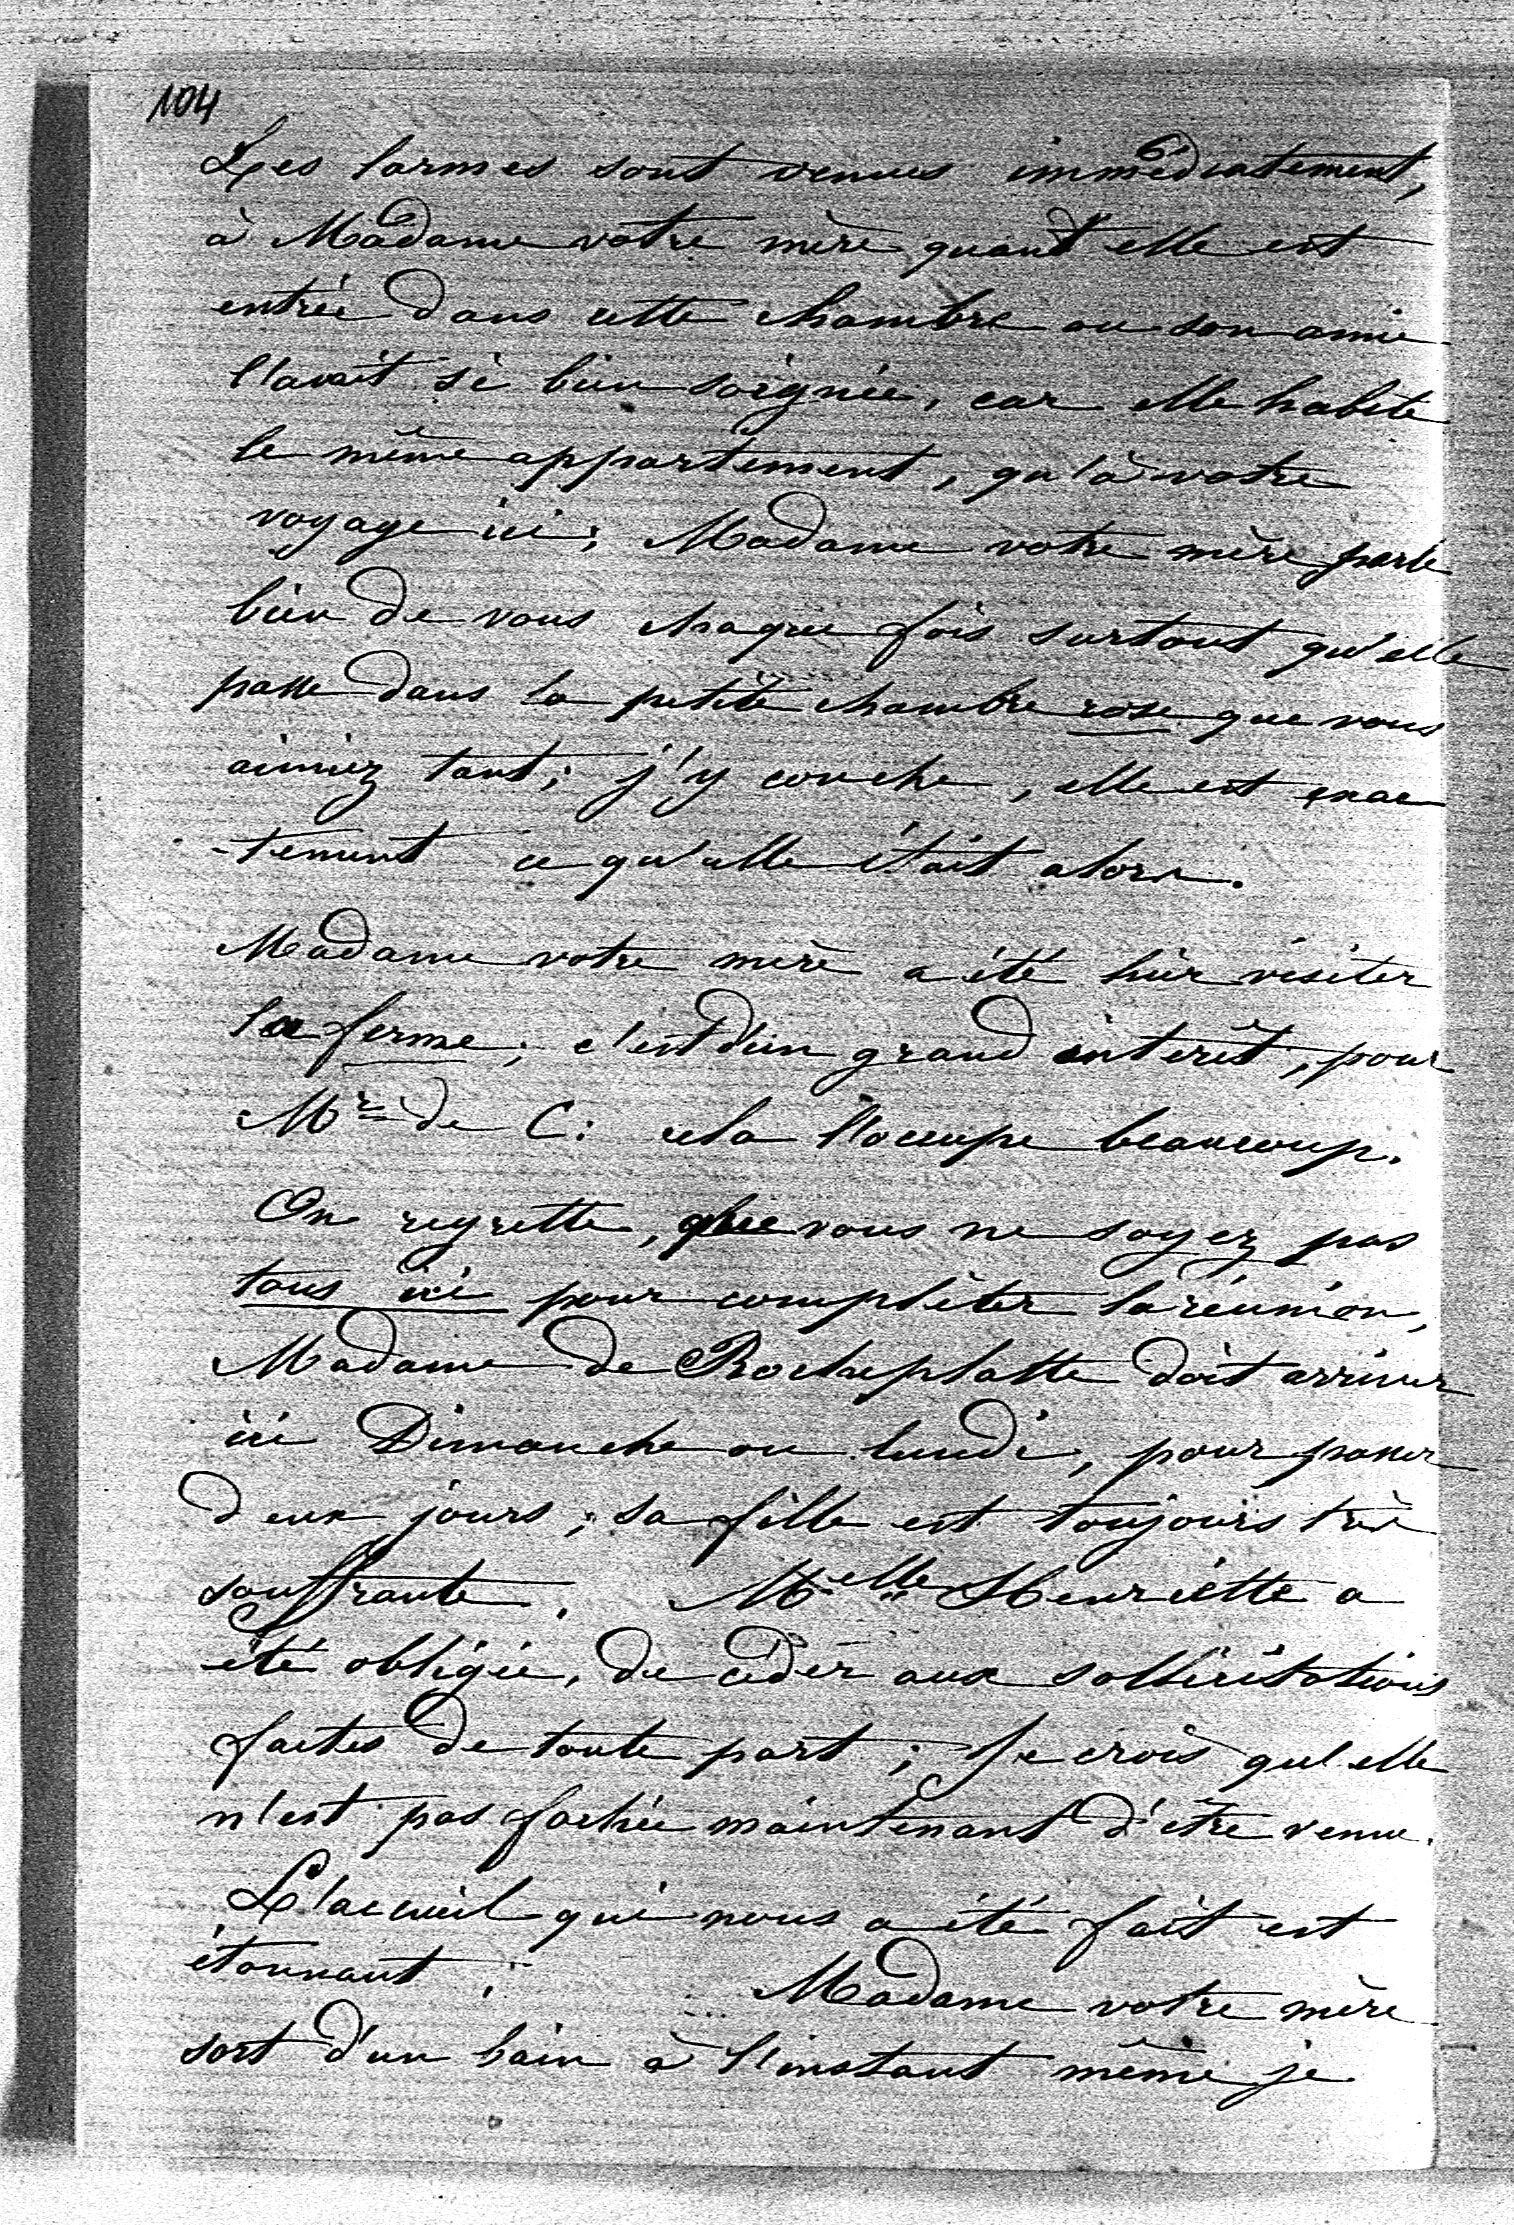 104
Les larmes sont venues immédiatement,
à Madame votre mère quand elle est
entrée dans cette chambre ou son amie
l'avait si bien soignée, car elle habite
le même appartement, qu'à votre
voyage ici; Madame votre mère parle
bien de vous chaque fois surtout qu'elle
passe dans la petite chambre rose que vous
aimiez tant; j'y couche, elle est exac
-tement ce qu'elle était alors.
Madame votre mère a été hier visiter
la ferme; c'est d'un grand intérêt, pour
Mr de C: cela l'occupe beaucoup.
On regrette, que vous ne soyez pas
tous ici pour compléter la réunion,
Madame de Rocheplatte doit arriver
ici Dimanche ou lundi, pour passer
deux jours; sa fille est toujours très
souffrante. Melle Henriette a
été obligée, de céder aux sollicitations
faites de toute part; Je crois qu'elle
n'est pas fachée maintenant d'être venue.
L'accueil qui nous a été fait est
étonnant; Madame votre mère
sort d'un bain à l'instant même je